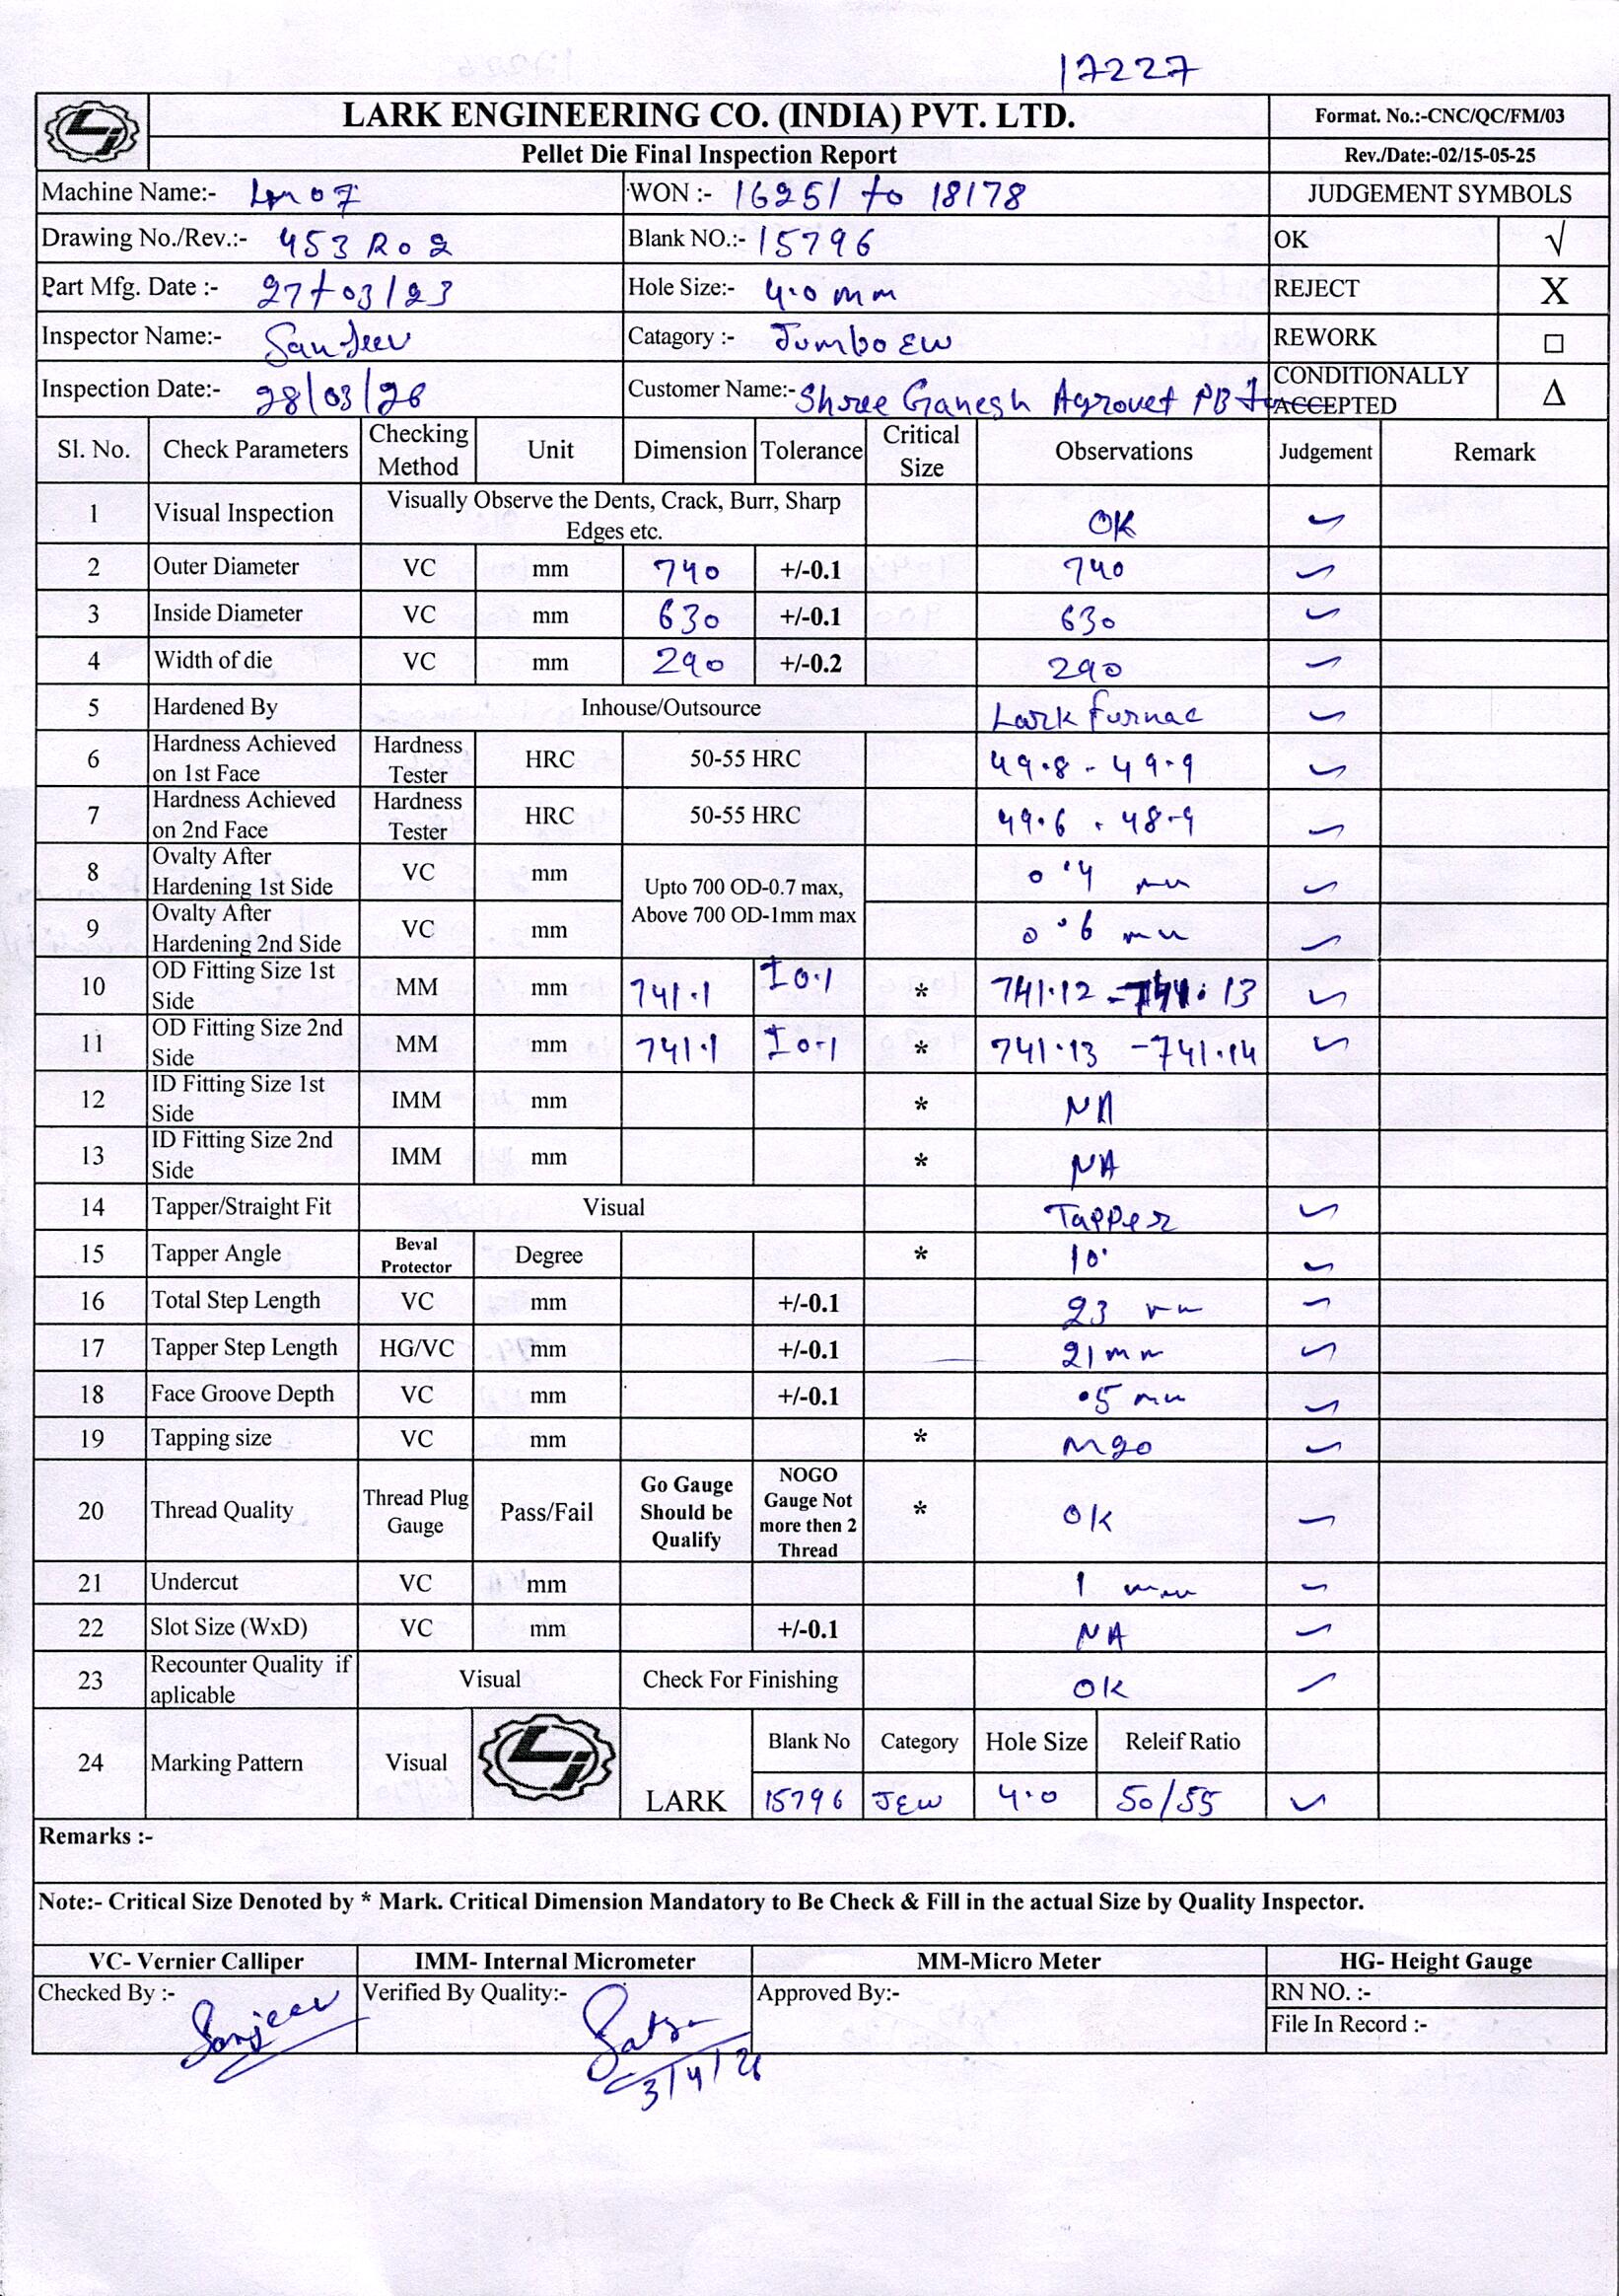 17227
LARK ENGINEERING CO. (INDIA) PVT. LTD. Format. No.:-CNC/QC/FM/03
Pellet Die Final Inspection Report Rev./Date:-02/15-05-25
Machine Name:- Lm07 WON :- 16251 to 18178 JUDGEMENT SYMBOLS
Drawing No./Rev.:- 453 R02 Blank NO.:- 15796 OK √
Part Mfg. Date :- 27/03/23 Hole Size:- 4.0 mm REJECT X
Inspector Name:- Sanjeev Catagory :- Jumbo EW REWORK □
Inspection Date:- 28/03/26 Customer Name:- Shree Ganesh Agrovet PB CONDITIONALLY ACCEPTED Δ
Sl. No. Check Parameters Checking Method Unit Dimension Tolerance Critical Size Observations Judgement Remark
1 Visual Inspection Visually Observe the Dents, Crack, Burr, Sharp Edges etc. OK ✓
2 Outer Diameter VC mm 740 +/-0.1 740 ✓
3 Inside Diameter VC mm 630 +/-0.1 630 ✓
4 Width of die VC mm 290 +/-0.2 290 ✓
5 Hardened By Inhouse/Outsource Lark furnac ✓
6 Hardness Achieved on 1st Face Hardness Tester HRC 50-55 HRC 49.8 - 49.9 ✓
7 Hardness Achieved on 2nd Face Hardness Tester HRC 50-55 HRC 49.6 . 48.9 ✓
8 Ovalty After Hardening 1st Side VC mm Upto 700 OD-0.7 max, Above 700 OD-1mm max 0.4 mm ✓
9 Ovalty After Hardening 2nd Side VC mm 0.6 mm ✓
10 OD Fitting Size 1st Side MM mm 741.1 ±0.1 * 741.12 - 741.13 ✓
11 OD Fitting Size 2nd Side MM mm 741.1 ±0.1 * 741.13 - 741.14 ✓
12 ID Fitting Size 1st Side IMM mm * NA
13 ID Fitting Size 2nd Side IMM mm * NA
14 Tapper/Straight Fit Visual Tapper ✓
15 Tapper Angle Beval Protector Degree * 10° ✓
16 Total Step Length VC mm +/-0.1 23 mm ✓
17 Tapper Step Length HG/VC mm +/-0.1 21 mm ✓
18 Face Groove Depth VC mm +/-0.1 .5 mm ✓
19 Tapping size VC mm * M20 ✓
20 Thread Quality Thread Plug Gauge Pass/Fail Go Gauge Should be Qualify NOGO Gauge Not more then 2 Thread * OK ✓
21 Undercut VC mm 1 mm ✓
22 Slot Size (WxD) VC mm +/-0.1 NA ✓
23 Recounter Quality if aplicable Visual Check For Finishing OK ✓
24 Marking Pattern Visual LARK Blank No Category Hole Size Releif Ratio
15796 JEW 4.0 50/55 ✓
Remarks :-
Note:- Critical Size Denoted by * Mark. Critical Dimension Mandatory to Be Check & Fill in the actual Size by Quality Inspector.
VC- Vernier Calliper IMM- Internal Micrometer MM-Micro Meter HG- Height Gauge
Checked By :- Sanjeev Verified By Quality:- Approved By:- RN NO. :-
File In Record :-
3/4/26